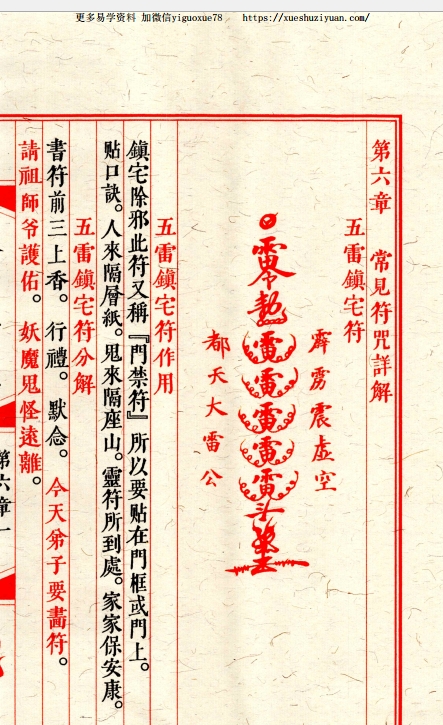 更多易学资料 加微信yiguoxue78 https://xueshuziyuan.com/
第六章 常見符咒詳解
五雷鎮宅符
霹靂震虛空
都天大雷公
五雷鎮宅符作用
鎮宅除邪此符又稱『門禁符』所以要貼在門框或門上。
貼口訣。人來隔層紙。鬼來隔座山。靈符所到處。家家保安康。
五雷鎮宅符分解
書符前三上香。行禮。默念。今天弟子要畵符。
請祖師爷護佑。妖魔鬼怪遠離。
第六章